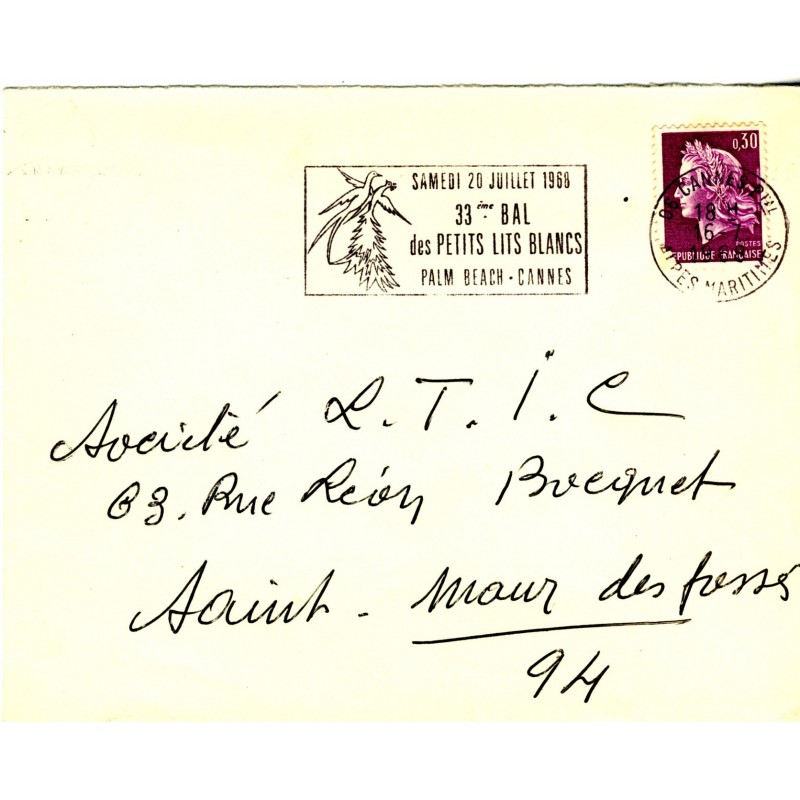 SAMEDI 20 JUILLET 1968
33ème BAL
des PETITS LITS BLANCS
PALM BEACH - CANNES
0,30
POSTES
REPUBLIQUE FRANÇAISE
06 CANNES
18 H
16 - 7
ALPES MARITIMES
Société L. T. I. C
63. Rue Léon Bocquet
Saint - Maur des fossés
94